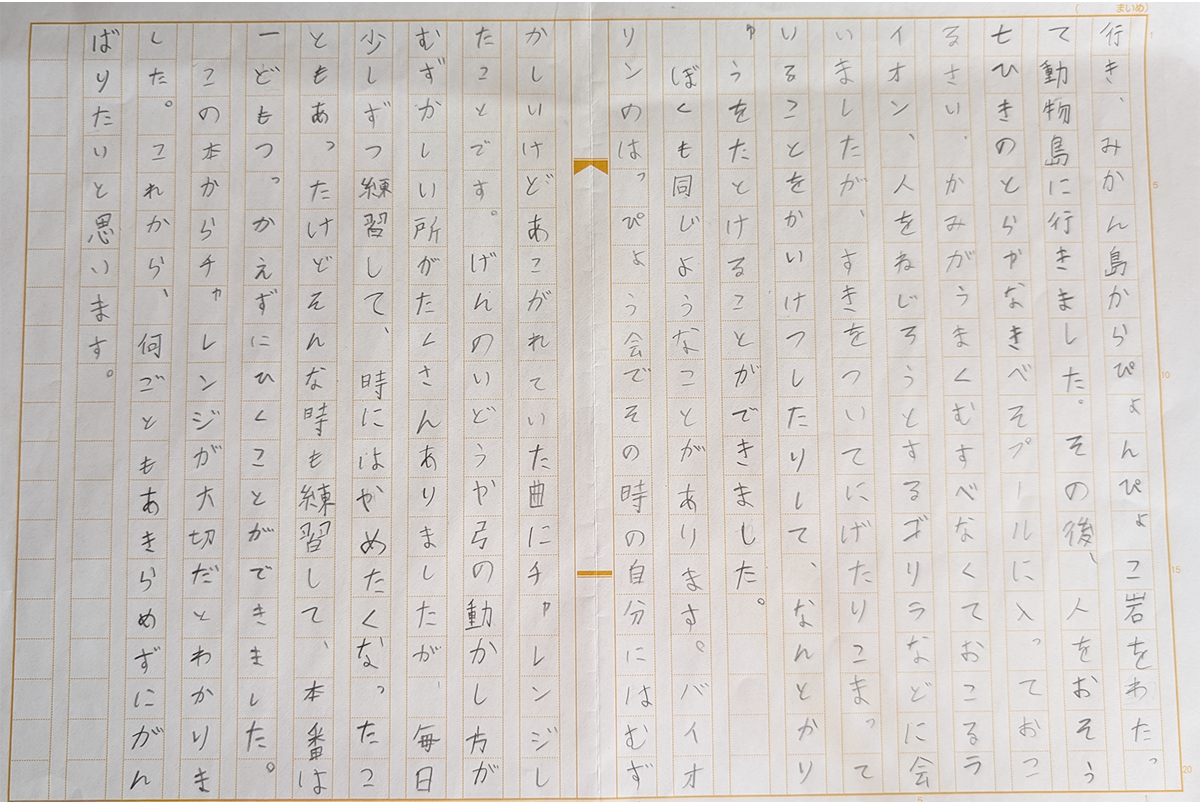 (　まいめ)
行き、みかん島からぴょんぴょこ岩をわたっ
て動物島に行きました。その後、人をおそう
七ひきのとらやなきべそプールに入っておこ
るさい、かみがうまくむすべなくておこるラ
イオン、人をねじろうとするゴリラなどに会
いましたが、すきをついてにげたりこまって
いることをかいけつしたりして、なんとかり
ゅうをたとけることができました。
ぼくも同じようなことがあります。バイオ
リンのはっぴょう会でその時の自分にはむず
かしいけどあこがれていた曲にチャレンジし
たことです。げんのいどうや弓の動かし方が
むずかしい所がたくさんありましたが、毎日
少しずつ練習して、時にはやめたくなったこ
ともあったけどそんな時も練習して、本番は
一どもつっかえずにひくことができました。
この本からチャレンジが大切だとわかりま
した。これから、何ごともあきらめずにがん
ばりたいと思います。
5
10
15
20